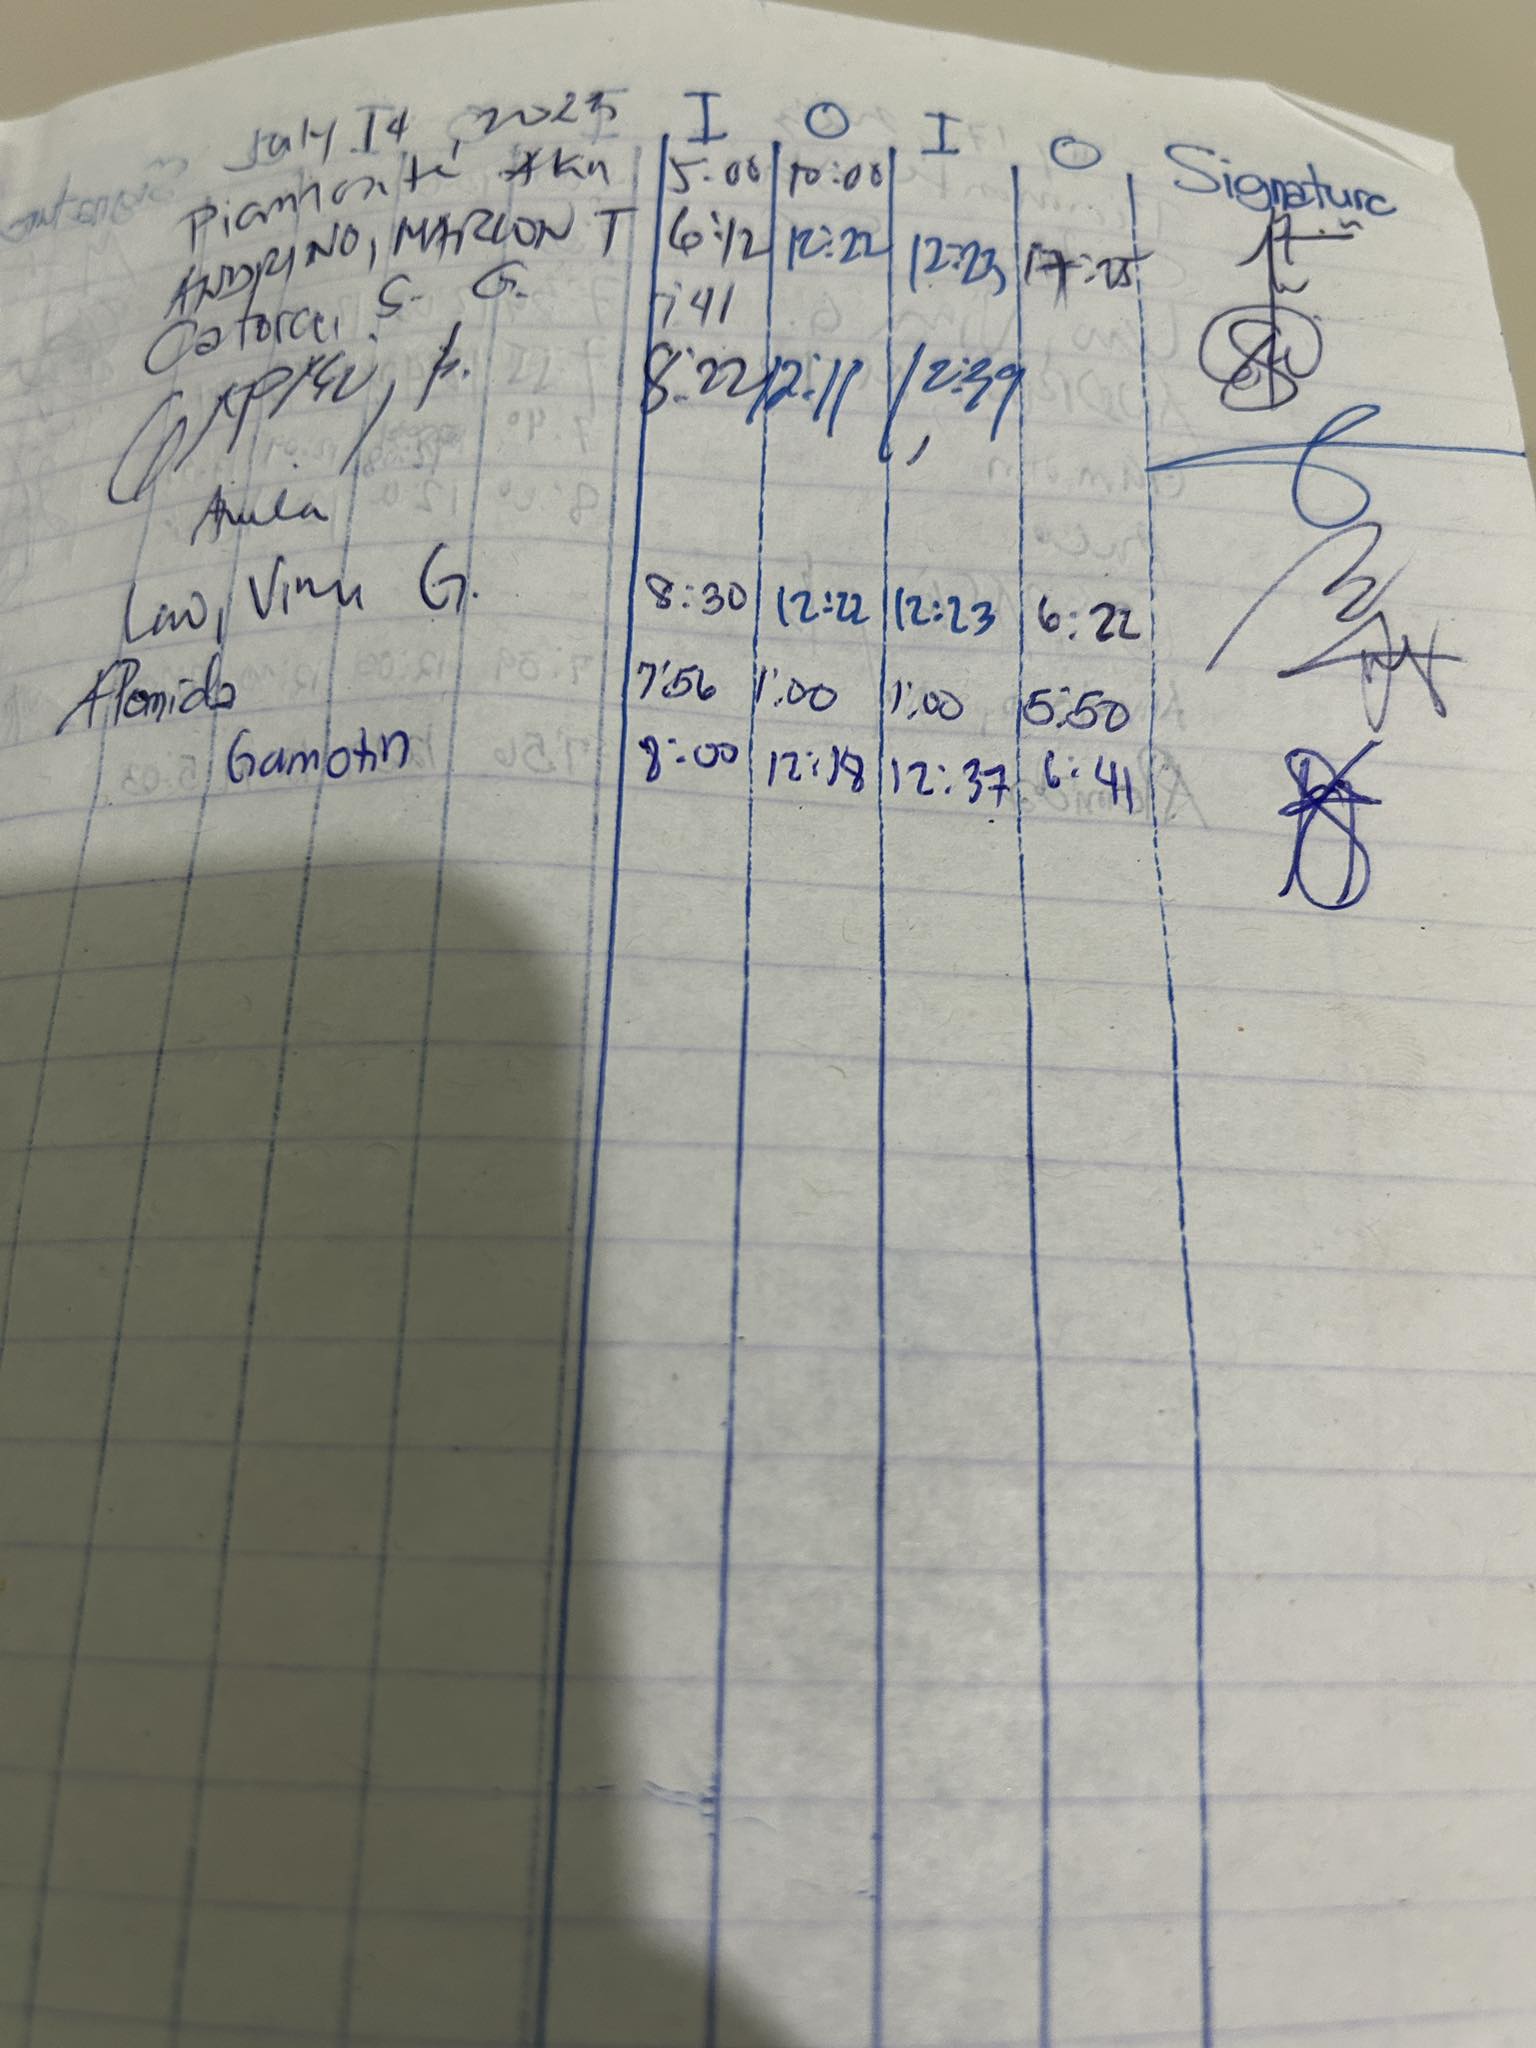 July 14, 2025 I O I O Signature
Piamonte 5:00 10:00
ANDRINO, MARLON T 6:12 12:22 12:23 17:25
Catorce, S. G. 7:41
8:22 12:11 12:39
Lao, G. 8:30 12:22 12:23 6:22
Alomida 7:56 1:00 1:00 5:50
Gamotin 8:00 12:18 12:37 6:41